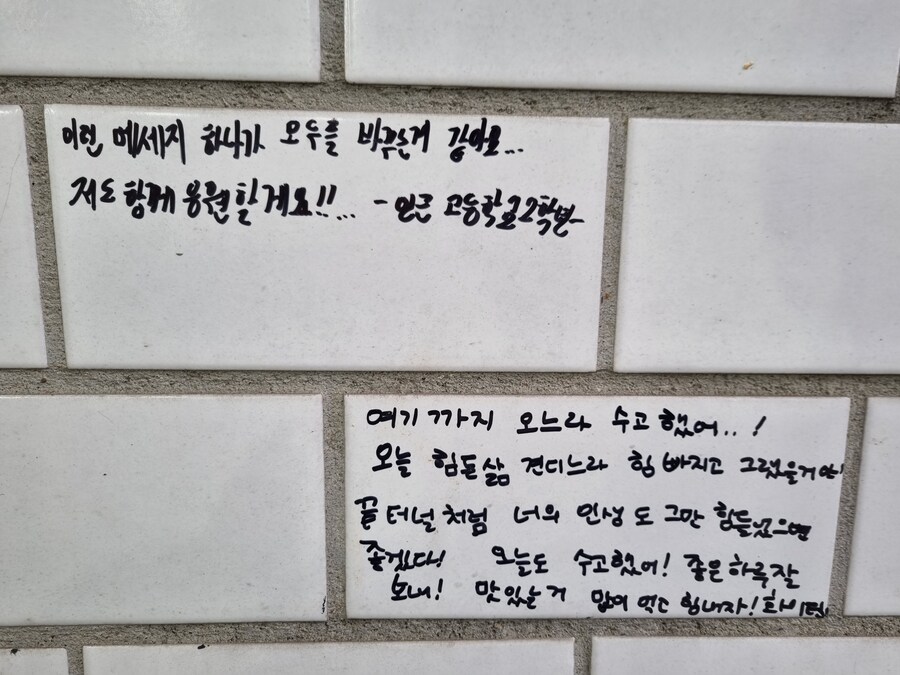 이런 메세지 하나가 모두를 바꾸는거 같아요...
저도 함께 응원할게요!!... -인근 고등학교 2학년-
여기 까지 오느라 수고했어..!
오늘 힘든 삶 견디느라 힘 빠지고 그랬을거야!
끝 터널처럼 너의 인생도 그만 힘들었으면
좋겠다! 오늘도 수고했어! 좋은하루 잘
보내! 맛있는거 많이 먹고 힘내자! 화이팅!